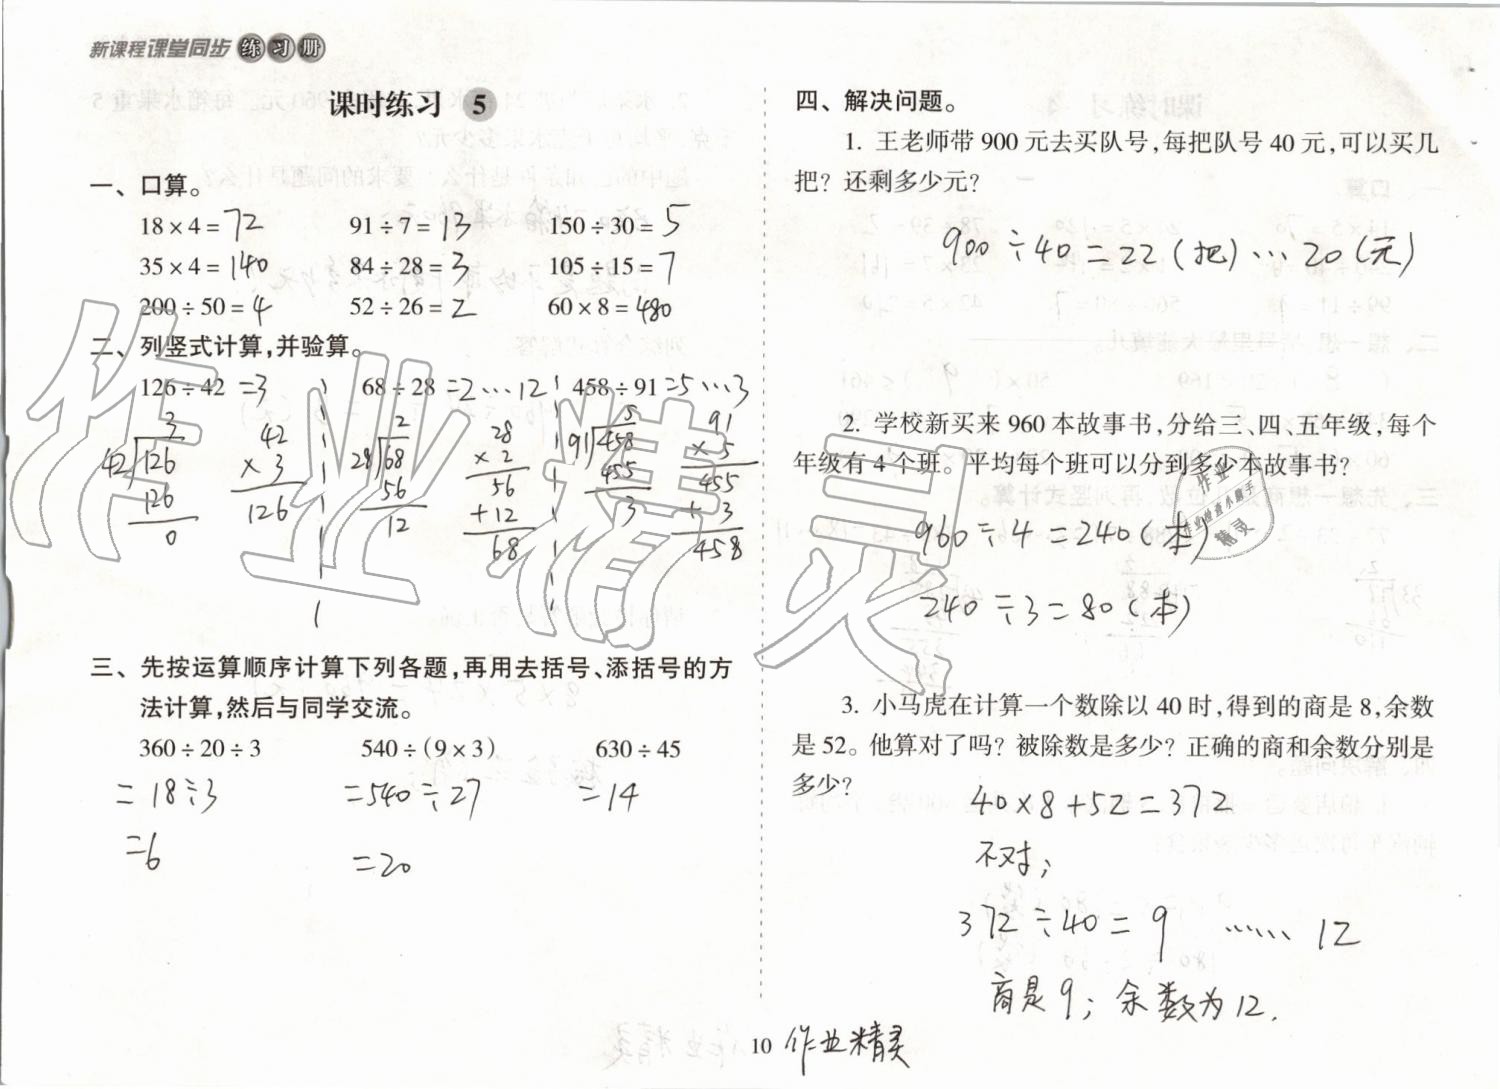 新课程课堂同步练习册
课时练习 5
一、口算。
18×4=72 91÷7=13 150÷30=5
35×4=140 84÷28=3 105÷15=7
200÷50=4 52÷26=2 60×8=480
二、列竖式计算,并验算。
126÷42=3 68÷28=2…12 458÷91=5…3
3 42 2 28 5 91
42 126 ×3 28 68 ×2 91 458 ×5
126 126 56 56 455 455
0 12 +12 3 +3
68 458
三、先按运算顺序计算下列各题,再用去括号、添括号的方
法计算,然后与同学交流。
360÷20÷3 540÷(9×3) 630÷45
=18÷3 =540÷27 =14
=6 =20
四、解决问题。
1. 王老师带 900 元去买队号,每把队号 40 元,可以买几
把? 还剩多少元?
900÷40=22(把)…20(元)
2. 学校新买来 960 本故事书,分给三、四、五年级,每个
年级有 4 个班。平均每个班可以分到多少本故事书?
960÷4=240(本)
240÷3=80(本)
3. 小马虎在计算一个数除以 40 时,得到的商是 8,余数
是 52。他算对了吗? 被除数是多少? 正确的商和余数分别是
多少?
40×8+52=372
不对;
372÷40=9 …… 12
商是9; 余数为12.
10 作业精灵
作业精灵
作业
作业检查小助手
精灵